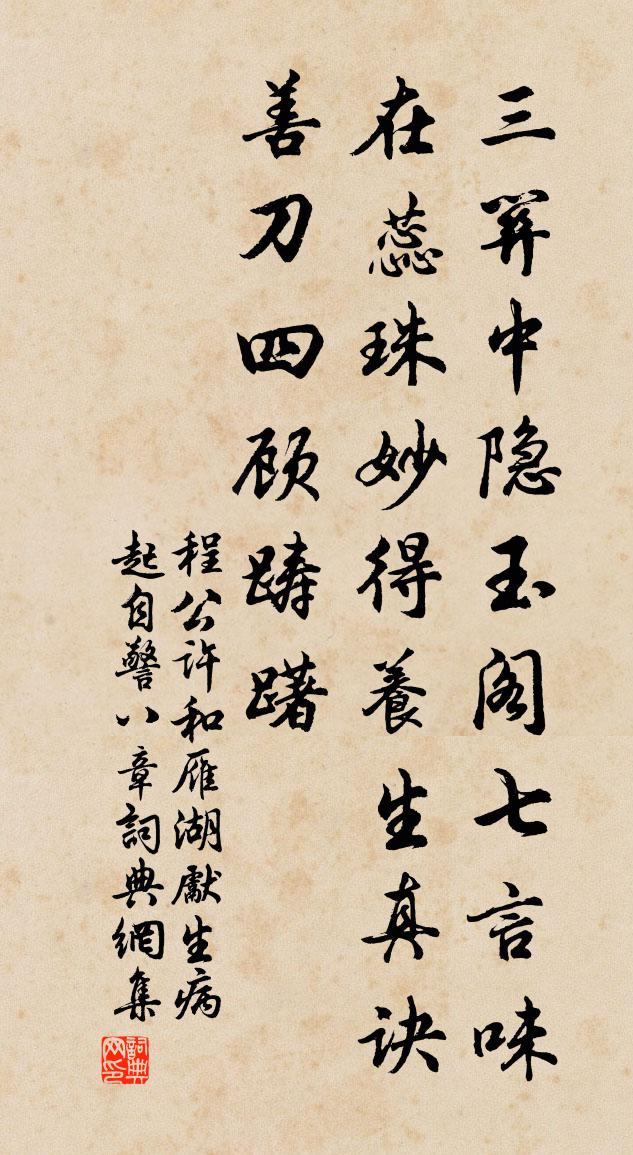 三关中隐玉阁七言味
在蕊珠妙得養生真诀
善刀四顾踌躇
程公许和雁湖獻生病
起自警八章詞典網集
詞典网印